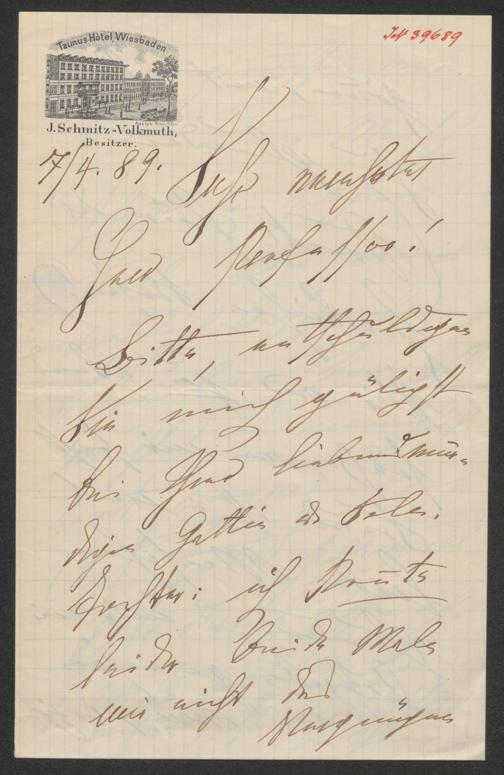 Taunus-Hôtel, Wiesbaden
J. Schmitz-Volkmuth,
Besitzer.
7/4. 89.
Sehr verehrter
Herr Professor!
Bitte, entschuldigen
Sie mich gütigst
bei Ihrer liebenswür-
digen Gattin
Tochter: ich konnte
leider beide Male
mir nicht das
Vergnügen